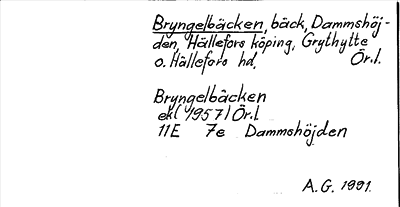 Bryngelbäcken, bäck, Dammshöj-
den, Hällefors köping, Grythytte
o. Hällefors hd, Ör.l.
Bryngelbäcken
ek(1957) Ör.l
11E 7e Dammshöjden
A.G. 1991.